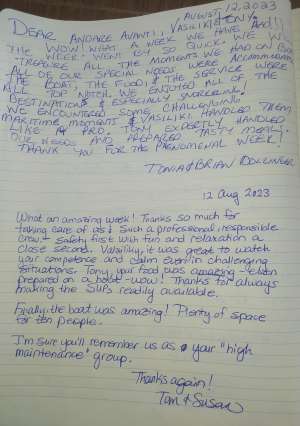 AUGUST 12, 2023
DEAR ANDARE AVANTI, VASILIKI & TONY,
THE WOW! WHAT A WEEK WE HAVE HAD!!
THE WEEK WENT BY SO QUICK. WE W
TREASURE ALL THE MOMENTS WE HAD ON BOA
ALL OF OUR SPECIAL NEEDS WERE ACCOMMODATED
THE BOAT, THE FOOD & THE SERVICE WERE
ALL TOP NOTCH! WE ENJOYED ALL OF THE
DESTINATIONS & ESPECIALLY SNORKELING.
WE ENCOUNTERED SOME CHALLENGING
MARITIME MOMENTS & VASILIKI HANDLED THEM
LIKE A PRO. TONY EXPERTLY HANDLED
OUR NEEDS AND PREPARED TASTY MEALS!
THANK YOU FOR THE PHENOMENAL WEEK!
TONIA & BRIAN
12 Aug 2023
What an amazing week! Thanks so much for
taking care of us! Such a professional, responsible
crew - safety first with fun and relaxation a
close second. Vasiliki, it was great to watch
your competence and calm even in challenging
situations. Tony, your food was amazing - even
prepared on a boat - wow! Thanks for always
making the SUPs readily available.
Finally, the boat was amazing! Plenty of space
for ten people.
I'm sure you'll remember us as your "high
maintenance" group.
Thanks again!
Tom & Susan